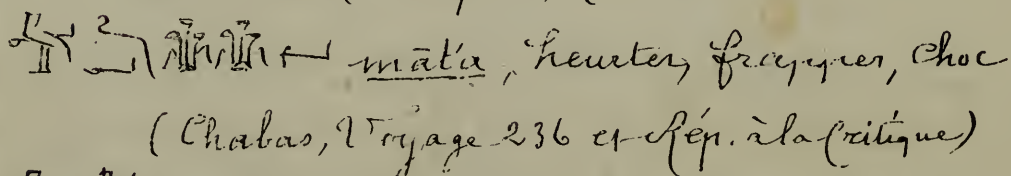 māt'a, heurter, frapper, choc
(Chabas, Voyage 236 et Rép. à la Critique)